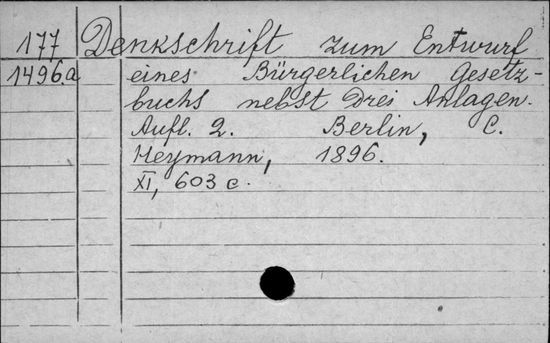 177 Denkschrift zum Entwurf
1496.a eines Bürgerlichen Gesetz-
buchs nebst Drei Anlagen.
Aufl. 2. Berlin, C.
Heymann, 1896.
XI, 603 c.